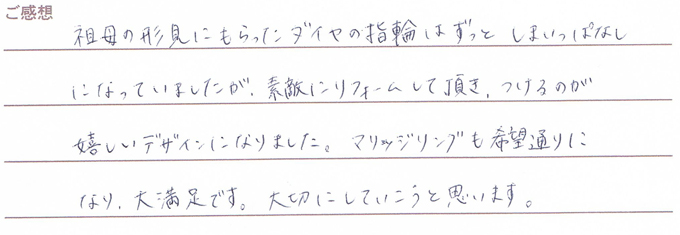 ご感想
祖母の形見にもらったダイヤの指輪はずっと しまいっぱなし
になっていましたが、素敵にリフォームして頂き、つけるのが
嬉しいデザインになりました。マリッジリングも希望通りに
なり、大満足です。大切にしていこうと思います。